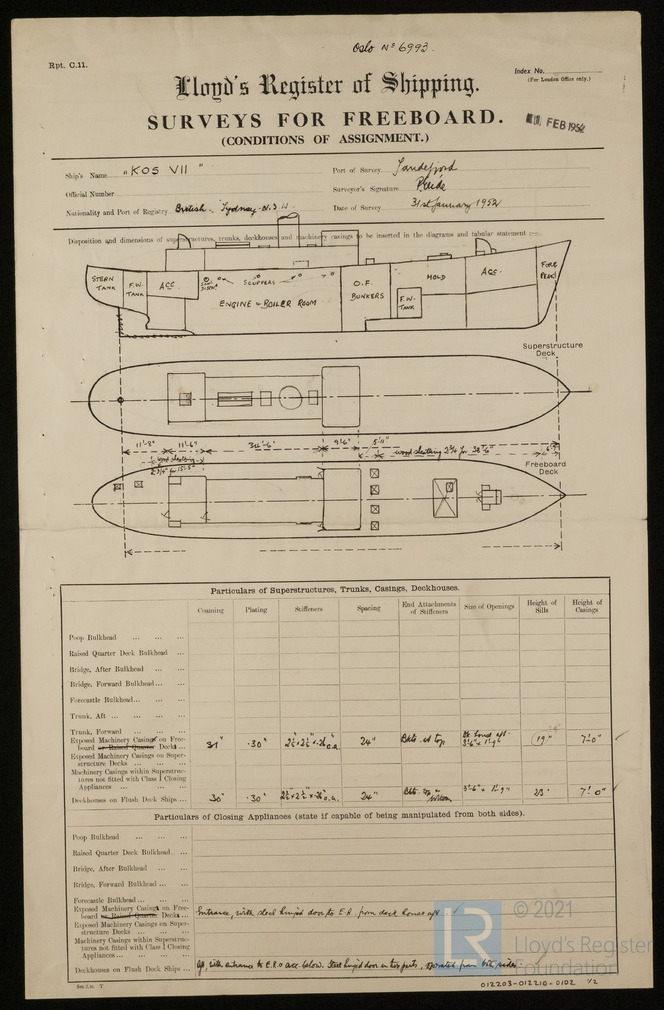 Oslo Nº 6993.
Rpt. C.11.
Index No.
(For London Office only.)
Lloyd's Register of Shipping.
SURVEYS FOR FREEBOARD.
(CONDITIONS OF ASSIGNMENT.)
FEB 1952
Ship's Name "KOS VII"
Port of Survey Sandefjord
Official Number
Surveyor's Signature
Nationality and Port of Registry British. Sydney. N.S.W.
Date of Survey 31st January 1952
Disposition and dimensions of superstructures, trunks, deckhouses and machinery casings to be inserted in the diagrams and tabular statement :—
STERN TANK
F.W. TANK
ACC
SCUPPERS
ENGINE & BOILER ROOM
O.F. BUNKERS
F.W. TANK
HOLD
ACC.
FORE PEAK
Superstructure Deck
11'-2" 11'-6" 34'-6" 9'-6" 5'11" wood sheathing 2¾ for 38'-6"
Freeboard Deck
Particulars of Superstructures, Trunks, Casings, Deckhouses.
Coaming Plating Stiffeners Spacing End Attachments of Stiffeners Size of Openings Height of Sills Height of Casings
Poop Bulkhead ... ... ...
Raised Quarter Deck Bulkhead ...
Bridge, After Bulkhead ... ...
Bridge, Forward Bulkhead... ...
Forecastle Bulkhead... ... ...
Trunk, Aft ... ... ... ...
Trunk, Forward ... ... ...
Exposed Machinery Casings on Freeboard or Raised Quarter Decks... 31" .30" 2½"x2½"x.26 o.a. 24" Bkts. at top 3'-6" x 1'-9" 19" 7'-0"
Exposed Machinery Casings on Superstructure Decks ... ... ...
Machinery Casings within Superstructures not fitted with Class I Closing Appliances ... ... ...
Deckhouses on Flush Deck Ships ... 30" .30" 2½"x2½"x.26" o.a. 24" 3'-6" x 1'-9" 23" 7'-0"
Particulars of Closing Appliances (state if capable of being manipulated from both sides).
Poop Bulkhead ... ... ...
Raised Quarter Deck Bulkhead ...
Bridge, After Bulkhead ... ...
Bridge, Forward Bulkhead ... ...
Forecastle Bulkhead ... ... ...
Exposed Machinery Casings on Freeboard or Raised Quarter Decks ... Entrance, with steel hinged door to E.R. from deck house aft.
Exposed Machinery Casings on Superstructure Decks ... ... ...
Machinery Casings within Superstructures not fitted with Class I Closing Appliances... ... ... ...
Deckhouses on Flush Deck Ships ... Aft, with entrance to E.R. & acc. below. Steel hinged door in two parts, operated from both sides
LR
© 2021
Lloyd's Register
Foundation
012203-012210-0102 1/2